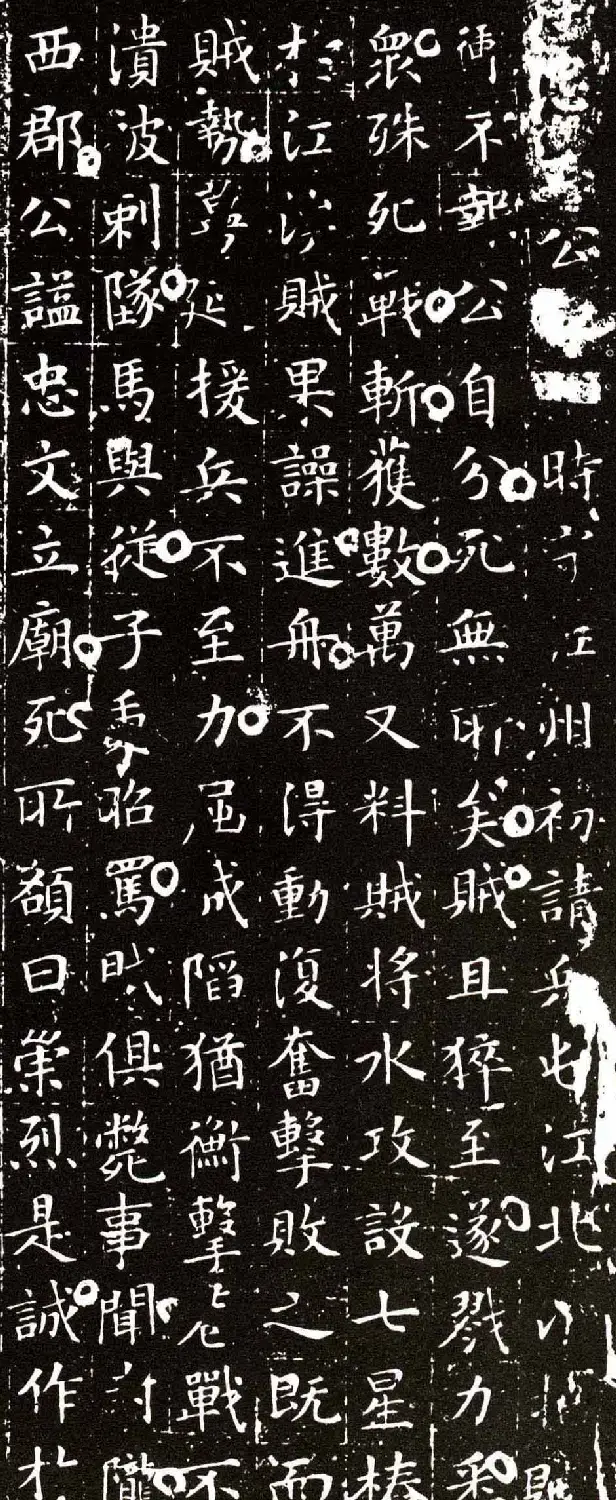 公時守江州初請兵屯江北
不報公自分死無所矣賊且猝至遂戮力
衆殊死戰斬獲數萬又料賊將水攻設七星樁
於江滸賊果譟進舟不得動復奮擊敗之既而
賊勢蔓延援兵不至力屈成陷猶衝擊巷戰不
潰波剌墜馬與從子秉昭罵賊俱斃事聞封隴
西郡公諡忠文立廟死所額曰崇烈是誠作於